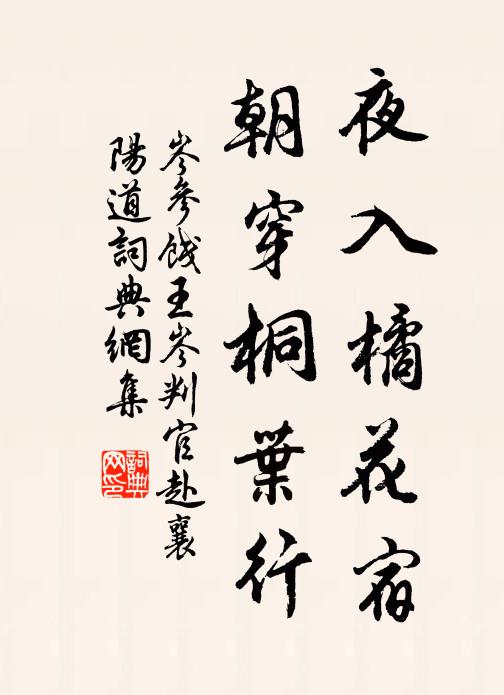 夜入橘花宿
朝穿桐葉行
岑參餞王岑判官赴襄
陽道詞典網集
詞典网印